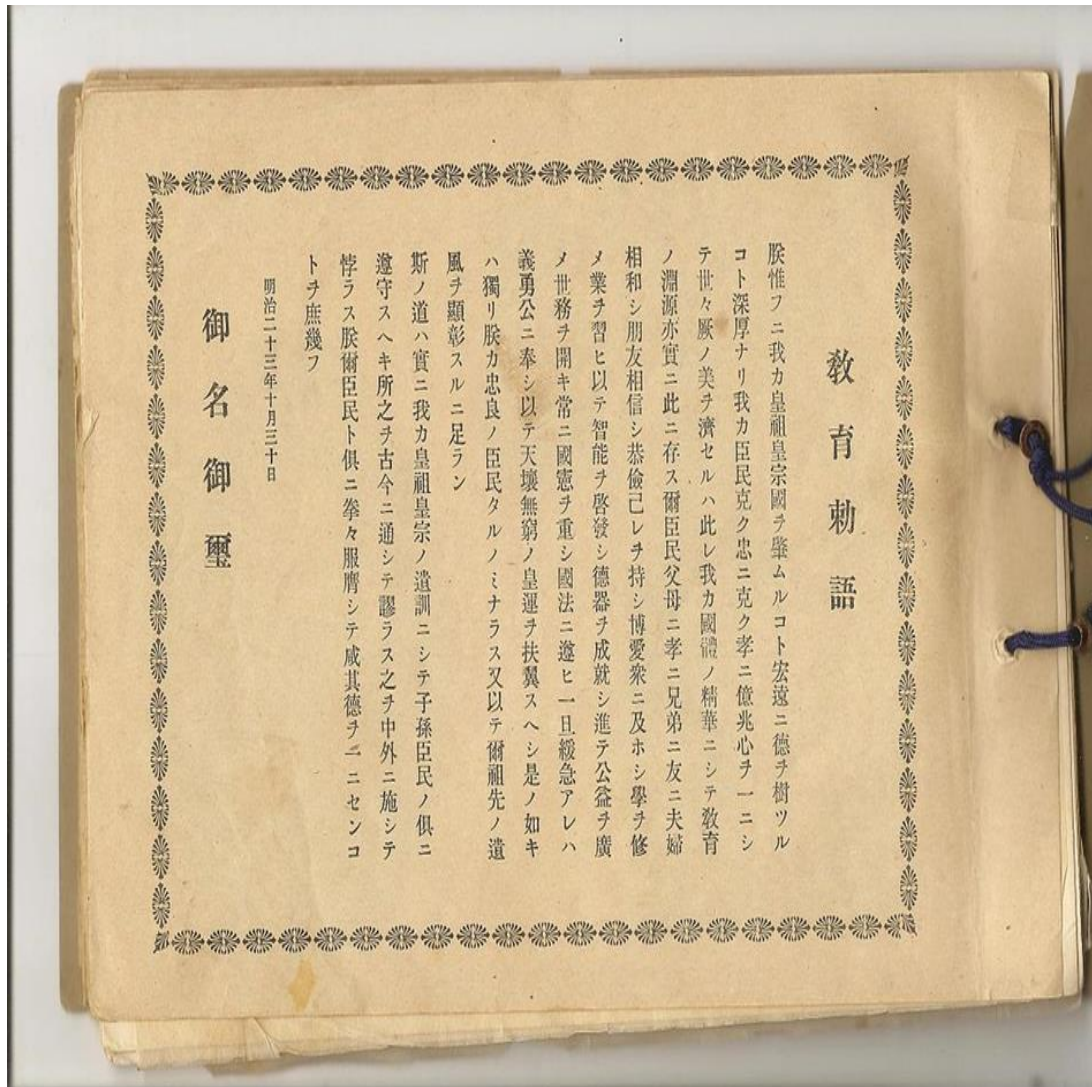 敎育勅語
朕惟フニ我カ皇祖皇宗國ヲ肇ムルコト宏遠ニ德ヲ樹ツル
コト深厚ナリ我カ臣民克ク忠ニ克ク孝ニ億兆心ヲ一ニシ
テ世々厥ノ美ヲ濟セルハ此レ我カ國體ノ精華ニシテ敎育
ノ淵源亦實ニ此ニ存ス爾臣民父母ニ孝ニ兄弟ニ友ニ夫婦
相和シ朋友相信シ恭儉己レヲ持シ博愛衆ニ及ホシ學ヲ修
メ業ヲ習ヒ以テ智能ヲ啓發シ德器ヲ成就シ進テ公益ヲ廣
メ世務ヲ開キ常ニ國憲ヲ重シ國法ニ遵ヒ一旦緩急アレハ
義勇公ニ奉シ以テ天壤無窮ノ皇運ヲ扶翼スヘシ是ノ如キ
ハ獨リ朕カ忠良ノ臣民タルノミナラス又以テ爾祖先ノ遺
風ヲ顯彰スルニ足ラン
斯ノ道ハ實ニ我カ皇祖皇宗ノ遺訓ニシテ子孫臣民ノ俱ニ
遵守スヘキ所之ヲ古今ニ通シテ謬ラス之ヲ中外ニ施シテ
悖ラス朕爾臣民ト俱ニ拳々服膺シテ咸其德ヲ一ニセンコ
トヲ庶幾フ
明治二十三年十月三十日
御名御璽